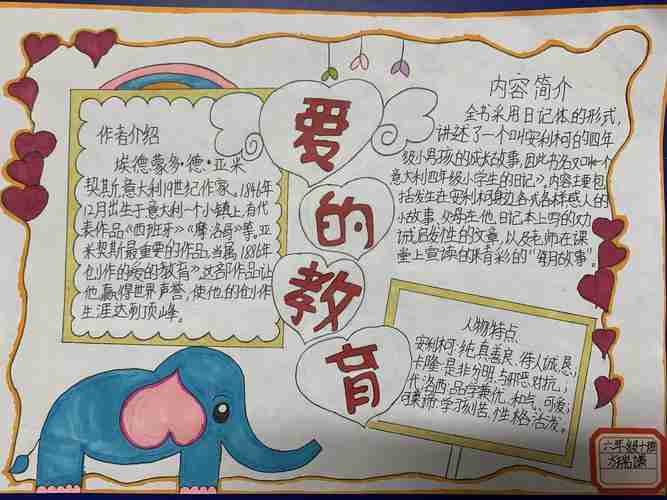 爱
的
教
育
作者介绍
埃德蒙多·德·亚米
契斯,意大利19世纪作家。1846年
12月出生于意大利一个小镇上,有代
表作品《西班牙》《摩洛哥》等。亚
米契斯最重要的作品,当属1886年
创作的《爱的教育》,这部作品让
他赢得世界声誉,使他的创作
生涯达到顶峰。
内容简介
全书采用日记体的形式,
讲述了一个叫安利柯的四年
级小男孩的成长故事,因此书名又叫《一个
意大利四年级小学生的日记》。内容主要包
括发生在安利柯身边各式各样感人的
小故事,父母在他日记本上写的劝
诫启发性的文章,以及老师在课
堂上宣读的精彩的“每月故事”。
人物特点
安利柯:纯真善良、待人诚恳;
卡隆:是非分明、与邪恶对抗;
代洛西:品学兼优、和贞、可爱;
学习刻苦、性格活泼。
六年级十班